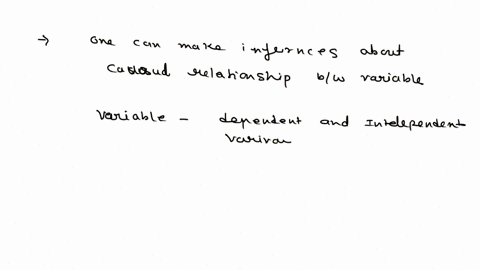 → One can make infernces about
relationship b/w variable
Variable - dependent and Intdependent
varivar